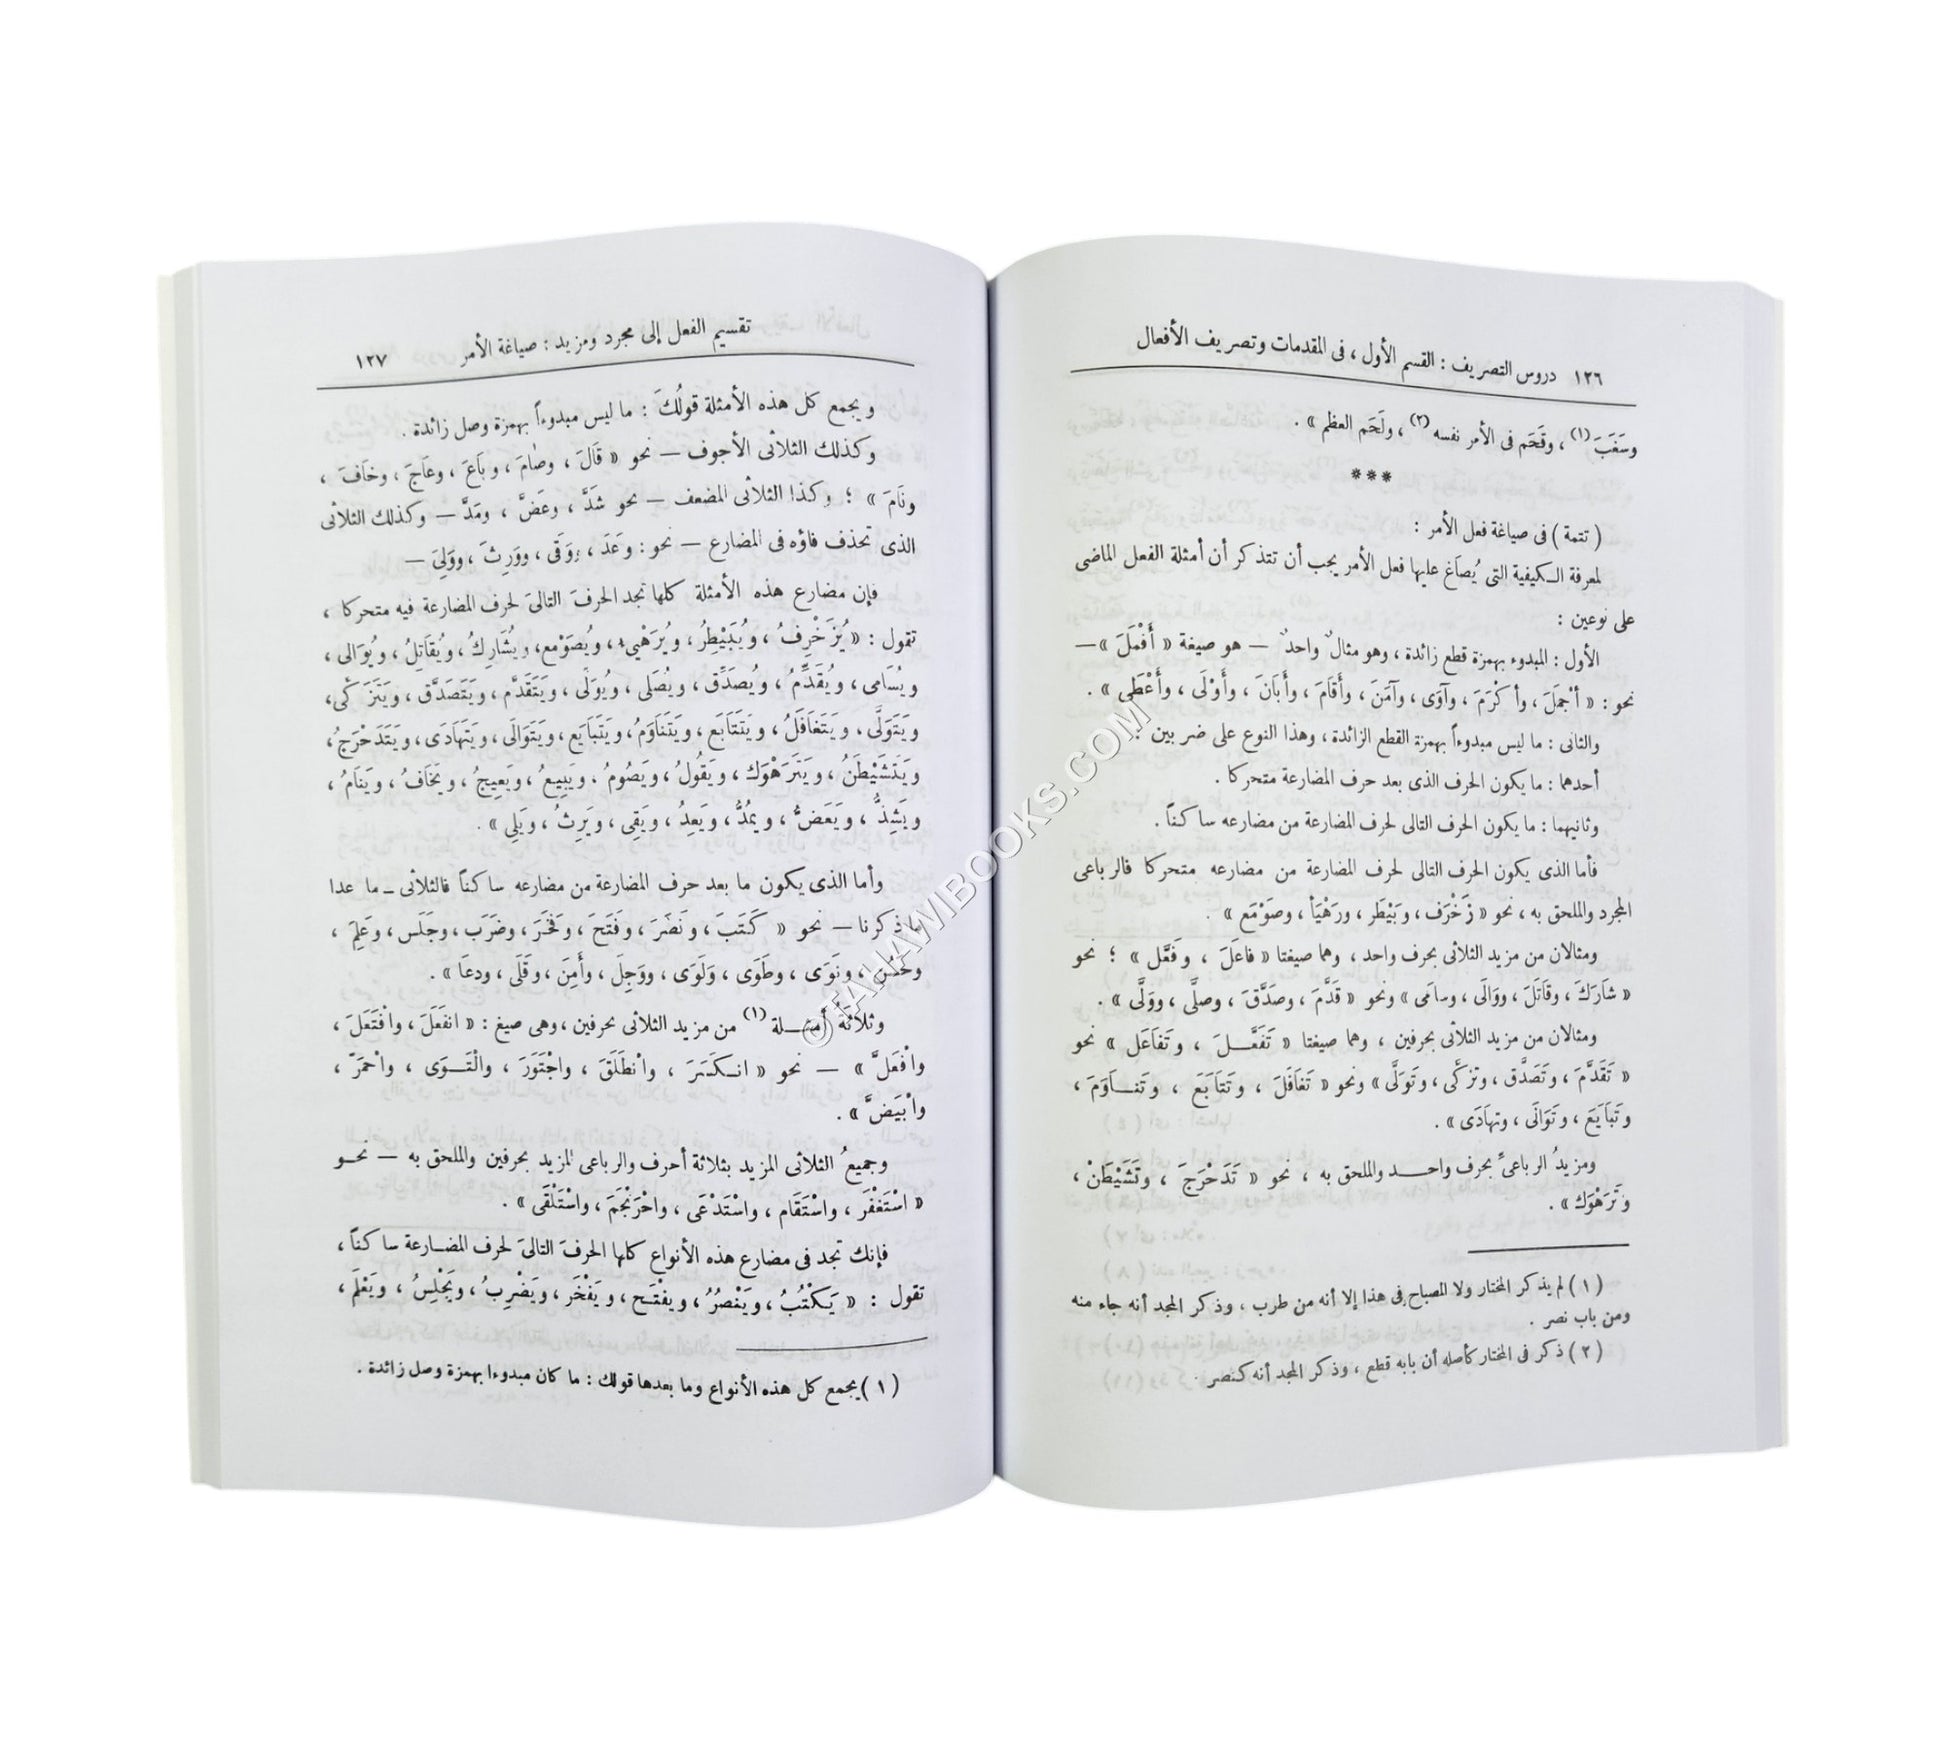 ١٢٦ دروس التصريف : القسم الأول ، فى المقدمات وتصريف الأفعال
وسَغَبَ (١) ، وقَحَم فى الأمر نفسه (٢) ، ولَحَم العظم » .
***
( تتمة ) فى صياغة فعل الأمر :
لمعرفة الكيفية التى يُصاَغ عليها فعل الأمر يجب أن تتذكر أن أمثلة الفعل الماضى
على نوعين :
الأول : المبدوء بهمزة قطع زائدة ، وهو مثالٌ واحدٌ — هو صيغة « أَفْعَلَ » —
نحو : « أجْملَ ، وأكْرَمَ ، وآوَى ، وآمَنَ ، وأَقَامَ ، وأَبَانَ ، وأَوْلَى ، وأَعْطَى » .
والثانى : ما ليس مبدوءاً بهمزة القطع الزائدة ، وهذا النوع على ضربين :
أحدهما : ما يكون الحرف الذى بعد حرف المضارعة متحركا .
وثانيهما : ما يكون الحرف التالى لحرف المضارعة من مضارعه ساكناً .
فأما الذى يكون الحرف التالى لحرف المضارعة من مضارعه متحركا فالرباعى
المجرد والملحق به ، نحو « زَخْرَف ، وبَيْطَر ، ورَهْيَأ ، وصَوْمَع » .
ومثالان من مزيد الثلاثى بحرف واحد ، وهما صيغتا « فاعَلَ ، وفَعَّل » ؛ نحو
« شارَكَ ، وقاَتَلَ ، ووَالَى ، وسامَى » ونحو « قَدَّمَ ، وصَدَّقَ ، وصلَّى ، ووَلَّى » .
ومثالان من مزيد الثلاثى بحرفين ، وهما صيغتا « تَفَعَّـلَ ، وتَفاَعَل » نحو
« تَقَدَّمَ ، وتَصَدَّق ، وتزكَّى ، وتَولَّى » ونحو « تَغاَفَلَ ، وتَتَابَعَ ، وتَنـاَوَمَ ،
وتَبَايَعَ ، وتَوَالَى ، وتهاَدَى » .
ومزيدُ الرباعىِّ بحرف واحـد والملحق به ، نحو « تَدَحْرَجَ ، وتَشَيْطَنَ ،
وتَرَهْوَكَ » .
( ١ ) لم يذكر المختار ولا المصباح فى هذا إلا أنه من طرب ، وذكر المجد أنه جاء منه
ومن باب نصر .
( ٢ ) ذكر فى المختار كأصله أن بابه قطع ، وذكر المجد أنه كنصر .
تقسيم الفعل إلى مجرد ومزيد : صياغة الأمر ١٢٧
ويجمع كل هذه الأمثلة قولُكَ : ما ليس مبدوءاً بهمزة وصل زائدة .
وكذلك الثلاثى الأجوف — نحو « قَالَ ، وصَامَ ، وبَاعَ ، وعَاجَ ، وخاَفَ ،
ونَامَ » ؛ وكذا الثلاثى المضعف — نحو شَدَّ ، وعَضَّ ، ومَدَّ — وكذلك الثلاثى
الذى تحذف فاؤه فى المضارع — نحو : وعَدَ ، ووَقَى ، ووَرِثَ ، ووَلِيَ —
فإن مضارع هذه الأمثلة كلها تجد الحرفَ التالىَ لحرف المضارعة فيه متحركا ،
تقول : « يُزَخْرِفُ ، ويُبَيْطِرُ ، ويُرَهْيِىءُ ، ويُصَوْمِع ، ويُشَارِكُ ، ويُقاَتِلُ ، ويُوَالى ،
ويُسَامى ، ويُقَدِّمُ ، ويُصَدِّق ، ويُصَلى ، ويُوَلى ، ويَتَقَدَّم ، ويَتَصَدَّق ، ويَتَزَكَّى ،
ويَتَوَلَّى ، ويَتَغاَفَلُ ، ويَتَتَابَع ، ويَتَنَاوَمُ ، ويَتَبَايَع ، ويَتَوَالَى ، ويَتَهاَدَى ، ويَتَدَحْرَجُ ،
ويَتَشَيْطَنُ ، ويَتَرَهْوَك ، ويَقُولُ ، ويَصُومُ . ويَبِيعُ ، ويَعِيجُ ، ويَخاَفُ ، ويَنَامُ ،
ويَشِذُّ ، ويَعَضُّ ، ويمُدُّ ، ويَعِدُ ، ويَقِى ، ويَرِثُ ، ويَلِي » .
وأما الذى يكون ما بعد حرف المضارعة من مضارعه ساكناً فالثلاثى ـ ما عدا
ما ذكرنا — نحو « كَتَبَ ، ونَصَرَ ، وفَتَحَ ، وفَخَرَ ، وضَرَب ، وجَلَس ، وعَلِمَ ،
وحَسُنَ ، ونَوَى ، وطَوَى ، ولَوَى ، ووَجِلَ ، وأَمِنَ ، وقَلَى ، ودعَا » .
وثلاثَةُ أمثـلة (١) من مزيد الثلاثى بحرفين ، وهى صيغ : « انفَعَلَ ، وافْتَعَلَ ،
وافْعَلَّ » — نحو « انـكَسَرَ ، وانْطَلَقَ ، واجْتَوَرَ ، والْتَـوَى ، واحْمَرّ ،
وابْيَضَّ » .
وجميعُ الثلاثى المزيد بثلاثة أحرف والرباعى المزيد بحرفين والملحق به — نحـو
« اسْتَغْفَرَ ، واسْتَقَام ، واسْتَدْعَى ، واحْرَنْجَمَ ، واسْتَلْقَى » .
فإنك تجد فى مضارع هذه الأنواع كلها الحرفَ التالىَ لحرف المضـارعة ساكناً ،
تقول : « يَكْتُبُ ، ويَنْصُرُ ، ويفتَـح ، ويَفْخَر ، ويَضْرِبُ ، ويَجْلِسُ ، ويَعْلَم ،
( ١ ) يجمع كل هذه الأنواع وما بعدها قولك : ما كان مبدوءا بهمزة وصل زائدة .
© TAHAWIBOOKS.COM